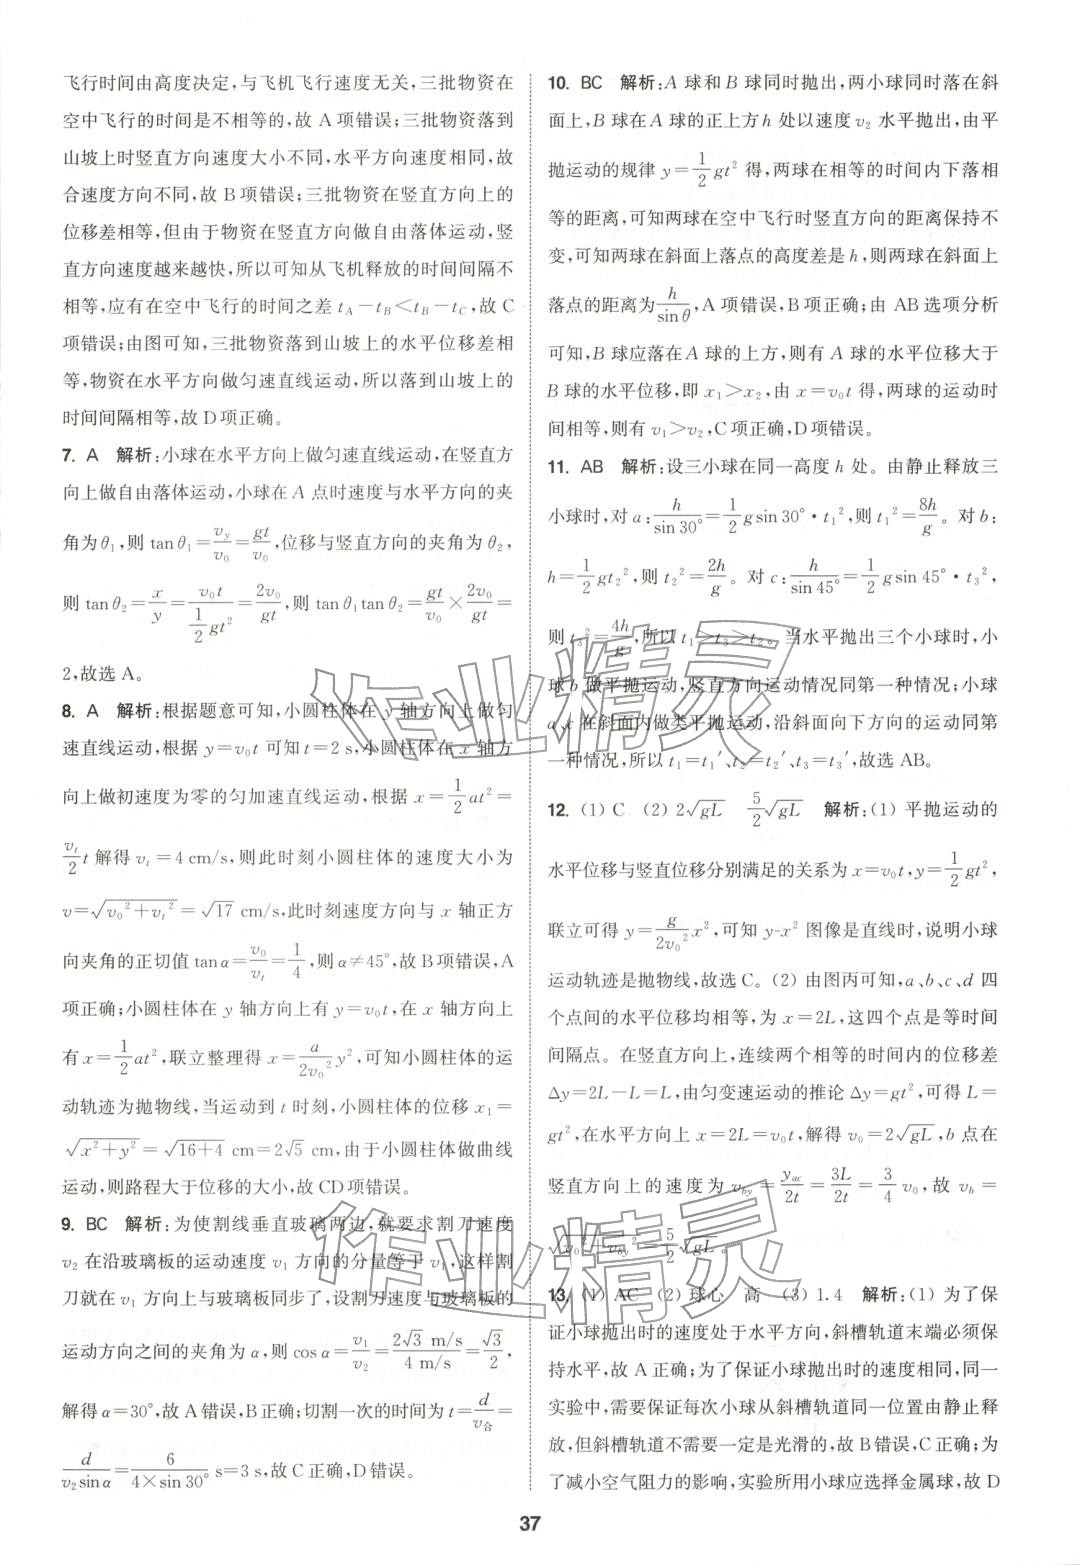 飞行时间由高度决定,与飞机飞行速度无关,三批物资在
空中飞行的时间是不相等的,故 A 项错误;三批物资落到
山坡上时竖直方向速度大小不同,水平方向速度相同,故
合速度方向不同,故 B 项错误;三批物资在竖直方向上的
位移差相等,但由于物资在竖直方向做自由落体运动,竖
直方向速度越来越快,所以可知从飞机释放的时间间隔不
相等,应有在空中飞行的时间之差 t_A－t_B＜t_B－t_C,故 C
项错误;由图可知,三批物资落到山坡上的水平位移差相
等,物资在水平方向做匀速直线运动,所以落到山坡上的
时间间隔相等,故 D 项正确。
7. A 解析:小球在水平方向上做匀速直线运动,在竖直方
向上做自由落体运动,小球在 A 点时速度与水平方向的夹
角为 θ₁,则 tan θ₁＝v_y/v₀＝gt/v₀,位移与竖直方向的夹角为 θ₂,
则 tan θ₂＝x/y＝v₀t/(½gt²)＝2v₀/gt,则 tan θ₁ tan θ₂＝gt/v₀×2v₀/gt＝
2,故选 A。
8. A 解析:根据题意可知,小圆柱体在 y 轴方向上做匀
速直线运动,根据 y＝v₀t 可知 t＝2 s,小圆柱体在 x 轴方
向上做初速度为零的匀加速直线运动,根据 x＝½at²＝
(v_t/2)t 解得 v_t＝4 cm/s,则此时刻小圆柱体的速度大小为
v＝√(v₀²＋v_t²)＝√17 cm/s,此时刻速度方向与 x 轴正方
向夹角的正切值 tan α＝v₀/v_t＝1/4,则 α≠45°,故 B 项错误,A
项正确;小圆柱体在 y 轴方向上有 y＝v₀t,在 x 轴方向上
有 x＝½at²,联立整理得 x＝(a/2v₀²)y²,可知小圆柱体的运
动轨迹为抛物线,当运动到 t 时刻,小圆柱体的位移 x₁＝
√(x²＋y²)＝√(16＋4) cm＝2√5 cm,由于小圆柱体做曲线
运动,则路程大于位移的大小,故 CD 项错误。
9. BC 解析:为使割线垂直玻璃两边,就要求割刀速度
v₂ 在沿玻璃板的运动速度 v₁ 方向的分量等于 v₁,这样割
刀就在 v₁ 方向上与玻璃板同步了,设割刀速度与玻璃板的
运动方向之间的夹角为 α,则 cos α＝v₁/v₂＝(2√3 m/s)/(4 m/s)＝√3/2,
解得 α＝30°,故 A 错误,B 正确;切割一次的时间为 t＝d/v合＝
d/(v₂ sin α)＝6/(4×sin 30°) s＝3 s,故 C 正确,D 错误。
10. BC 解析:A 球和 B 球同时抛出,两小球同时落在斜
面上,B 球在 A 球的正上方 h 处以速度 v₂ 水平抛出,由平
抛运动的规律 y＝½gt² 得,两球在相等的时间内下落相
等的距离,可知两球在空中飞行时竖直方向的距离保持不
变,可知两球在斜面上落点的高度差是 h,则两球在斜面上
落点的距离为 h/sin θ,A 项错误,B 项正确;由 AB 选项分析
可知,B 球应落在 A 球的上方,则有 A 球的水平位移大于
B 球的水平位移,即 x₁＞x₂,由 x＝v₀t 得,两球的运动时
间相等,则有 v₁＞v₂,C 项正确,D 项错误。
11. AB 解析:设三小球在同一高度 h 处。由静止释放三
小球时,对 a:h/sin 30°＝½g sin 30°·t₁²,则 t₁²＝8h/g。对 b:
h＝½gt₂²,则 t₂²＝2h/g。对 c:h/sin 45°＝½g sin 45°·t₃²,
则 t₃²＝4h/g,所以 t₁＞t₃＞t₂。当水平抛出三个小球时,小
球 b 做平抛运动,竖直方向运动情况同第一种情况;小球
a、c 在斜面内做类平抛运动,沿斜面向下方向的运动同第
一种情况,所以 t₁＝t₁′、t₂＝t₂′、t₃＝t₃′,故选 AB。
12. (1) C (2) 2√gL 5/2√gL 解析:(1) 平抛运动的
水平位移与竖直位移分别满足的关系为 x＝v₀t,y＝½gt²,
联立可得 y＝(g/2v₀²)x²,可知 y-x² 图像是直线时,说明小球
运动轨迹是抛物线,故选 C。(2) 由图丙可知,a、b、c、d 四
个点间的水平位移均相等,为 x＝2L,这四个点是等时间
间隔点。在竖直方向上,连续两个相等的时间内的位移差
Δy＝2L－L＝L,由匀变速运动的推论 Δy＝gt²,可得 L＝
gt²,在水平方向上 x＝2L＝v₀t,解得 v₀＝2√gL,b 点在
竖直方向上的速度为 v_by＝y_ac/2t＝3L/2t＝¾v₀,故 v_b＝
√(v₀²＋v_by²)＝5/2√gL。
13. (1) AC (2) 球心 高 (3) 1.4 解析:(1) 为了保
证小球抛出时的速度处于水平方向,斜槽轨道末端必须保
持水平,故 A 正确;为了保证小球抛出时的速度相同,同一
实验中,需要保证每次小球从斜槽轨道同一位置由静止释
放,但斜槽轨道不需要一定是光滑的,故 B 错误,C 正确;为
了减小空气阻力的影响,实验所用小球应选择金属球,故 D
37
作业精灵
作业精灵